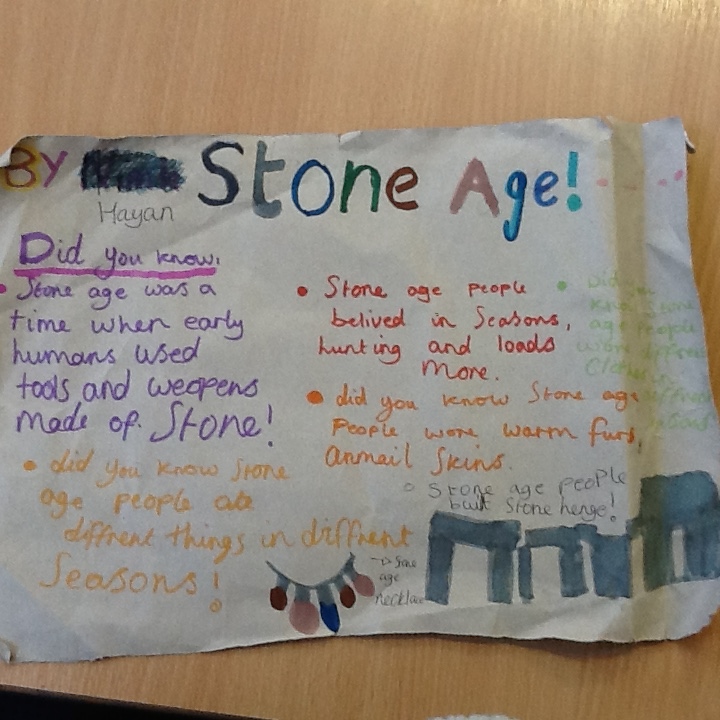 BY
Hayan
Stone Age!
Did you know:
Stone age was a
time when early
humans used
tools and weopens
made of Stone!
did you know Stone
age people ate
diffrent things in diffrent
Seasons!
Stone age people
belived in Seasons,
hunting and loads
more.
did you know Stone age
People wore warm furs,
anmail Skins.
Stone age people
built Stone henge!
Stone
age
necklace
Did you
know Stone
age People
wore diffrent
Clothes in
diffrent